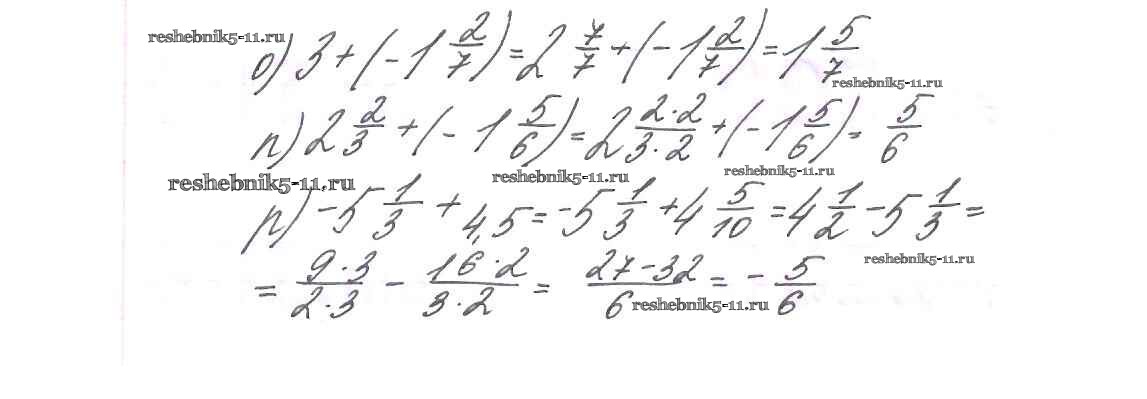 reshebnik5-11.ru
о) 3 + (-1 2/7) = 2 7/7 + (-1 2/7) = 1 5/7
reshebnik5-11.ru
п) 2 2/3 + (-1 5/6) = 2 2·2/3·2 + (-1 5/6) = 5/6
reshebnik5-11.ru reshebnik5-11.ru reshebnik5-11.ru
р) -5 1/3 + 4,5 = -5 1/3 + 4 5/10 = 4 1/2 - 5 1/3 =
reshebnik5-11.ru
= 9·3/2·3 - 16·2/3·2 = 27-32/6 = - 5/6
reshebnik5-11.ru